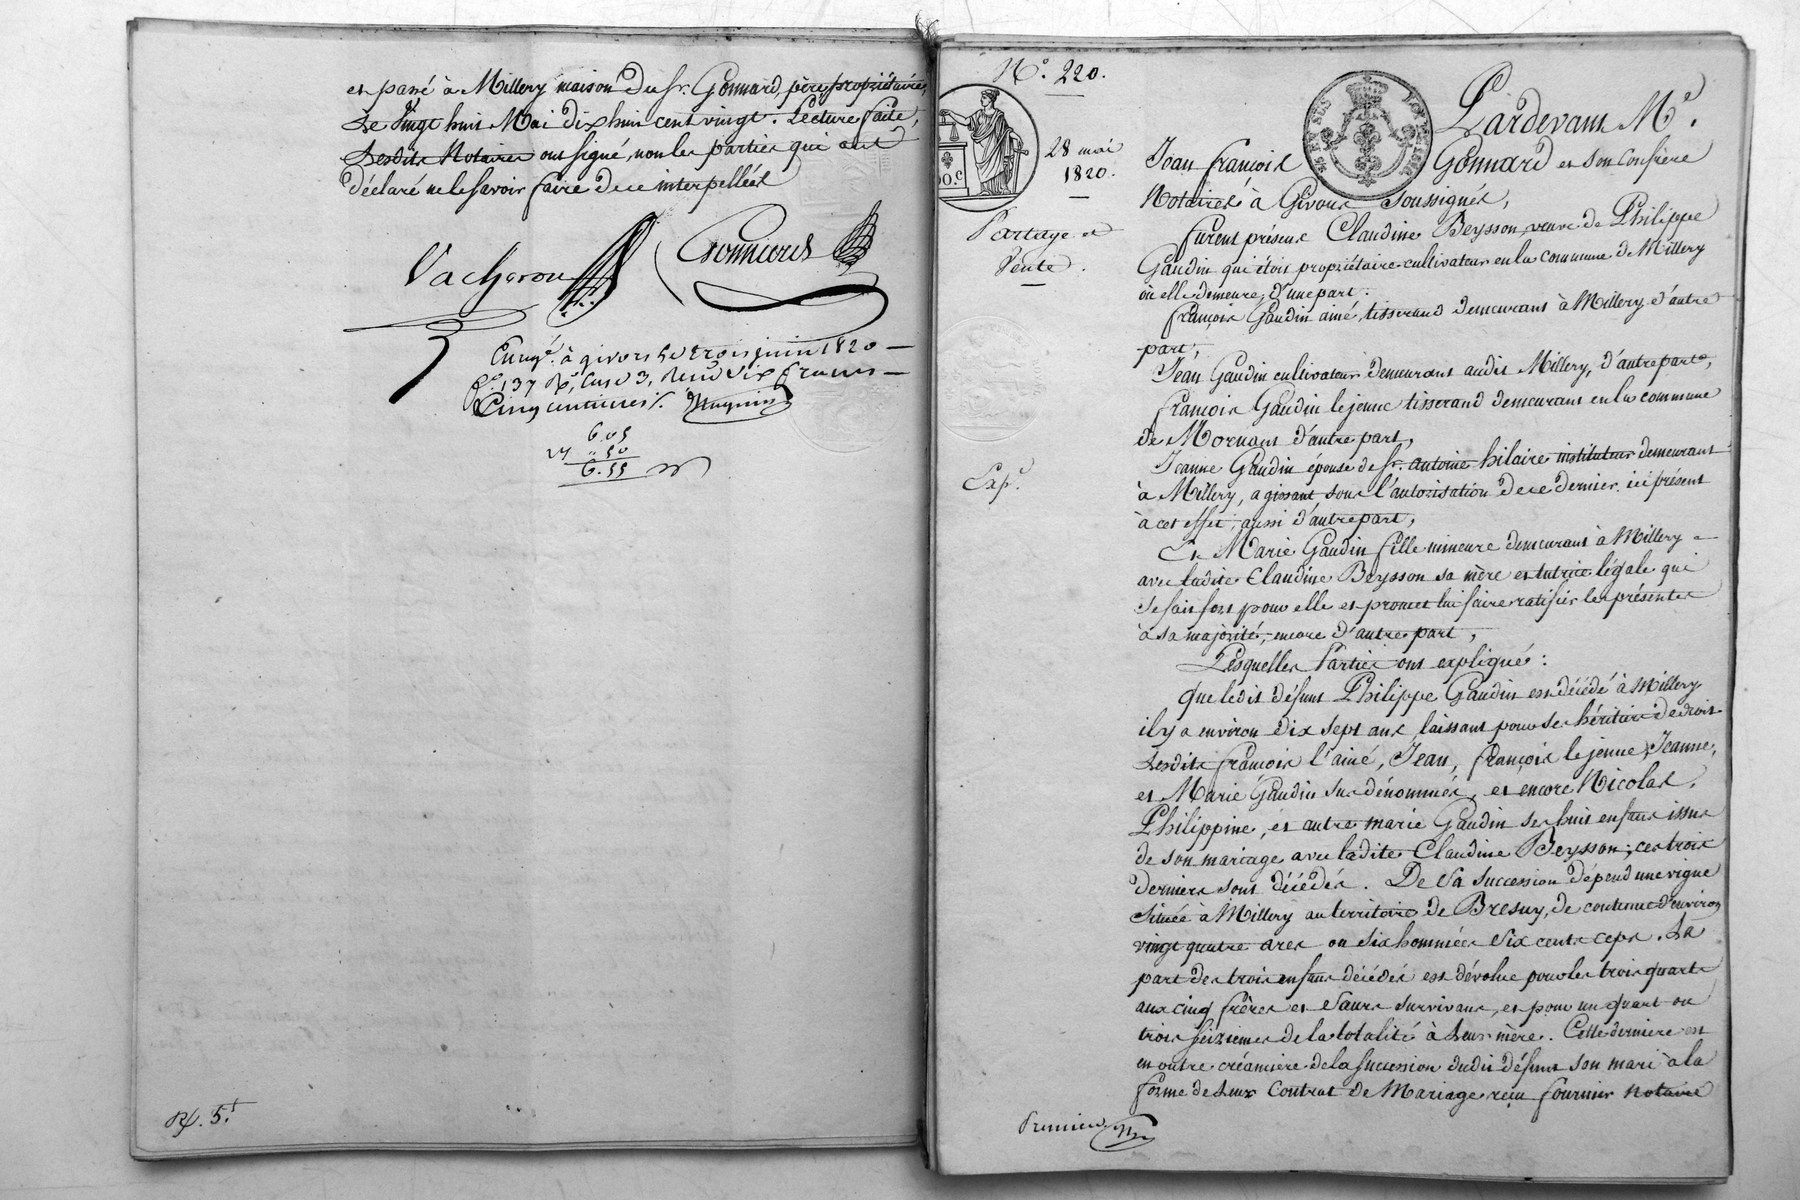 et passé à Millery maison du sr. Gonnard, père propriétaire,
Le Vingt huit Mai dix huit cent vingt. Lecture faite,
Lesdits Notaires ont signé, non les parties qui ont
déclaré ne le savoir faire de ce interpellées
Vacheron
Gonnard
Enregé. à givors le trois juin 1820
fo. 137 Ro, case 3, Reçu six francs
Cinq centimes
6.05
" 50
6.55
Rp. 5.f
No. 220.
28 mai
1820.
Partage et
Vente.
Exp.
Pardevant Me.
Jean françois Gonnard et son Confrère
Notaires à Givors soussignés,
furent présens Claudine Beysson, veuve de Philippe
Gaudin qui étoit propriétaire cultivateur en la commune de Millery
où elle demeure, d'une part.
françois Gaudin ainé, tisserand demeurant à Millery, d'autre
part,
Jean Gaudin cultivateur demeurant audit Millery, d'autre part,
françois Gaudin le jeune tisserand demeurant en la commune
de Mornant d'autre part,
Jeanne Gaudin épouse de sr. antoine hilaire instituteur demeurant
à Millery, agissant sous l'autorisation de ce dernier ici présent
à cet effet, aussi d'autre part,
Et Marie Gaudin fille mineure demeurant à Millery
avec ladite Claudine Beysson sa mère et tutrice légale qui
se fait fort pour elle et promet lui faire ratifier les présentes
à sa majorité, encore d'autre part,
Lesquelles Parties ont expliqué:
Que ledit défunt Philippe Gaudin est décédé à Millery
il y a environ dix sept ans, laissant pour ses héritiers de droit
Lesdits françois l'ainé, Jean, françois le jeune, Jeanne,
et Marie Gaudin sus dénommés, et encore Nicolas,
Philippine, et autre marie Gaudin ses huit enfans issus
de son mariage avec ladite Claudine Beysson, ces trois
derniers sont décédés. De sa succession dépend une vigne
située à Millery au territoire de Bresuy, de contenue d'environ
vingt quatre ares ou six hommées six cents ceps. La
part des trois enfans décédés est dévolue pour les trois quarts
aux cinq frères et sœurs survivans, et pour un quart ou
trois seiziemes de la totalité à leur mère. Cette derniere est
en outre créancière de la succession dudit défunt son mari à la
forme de leur Contrat de Mariage reçu fournier Notaire
Premier